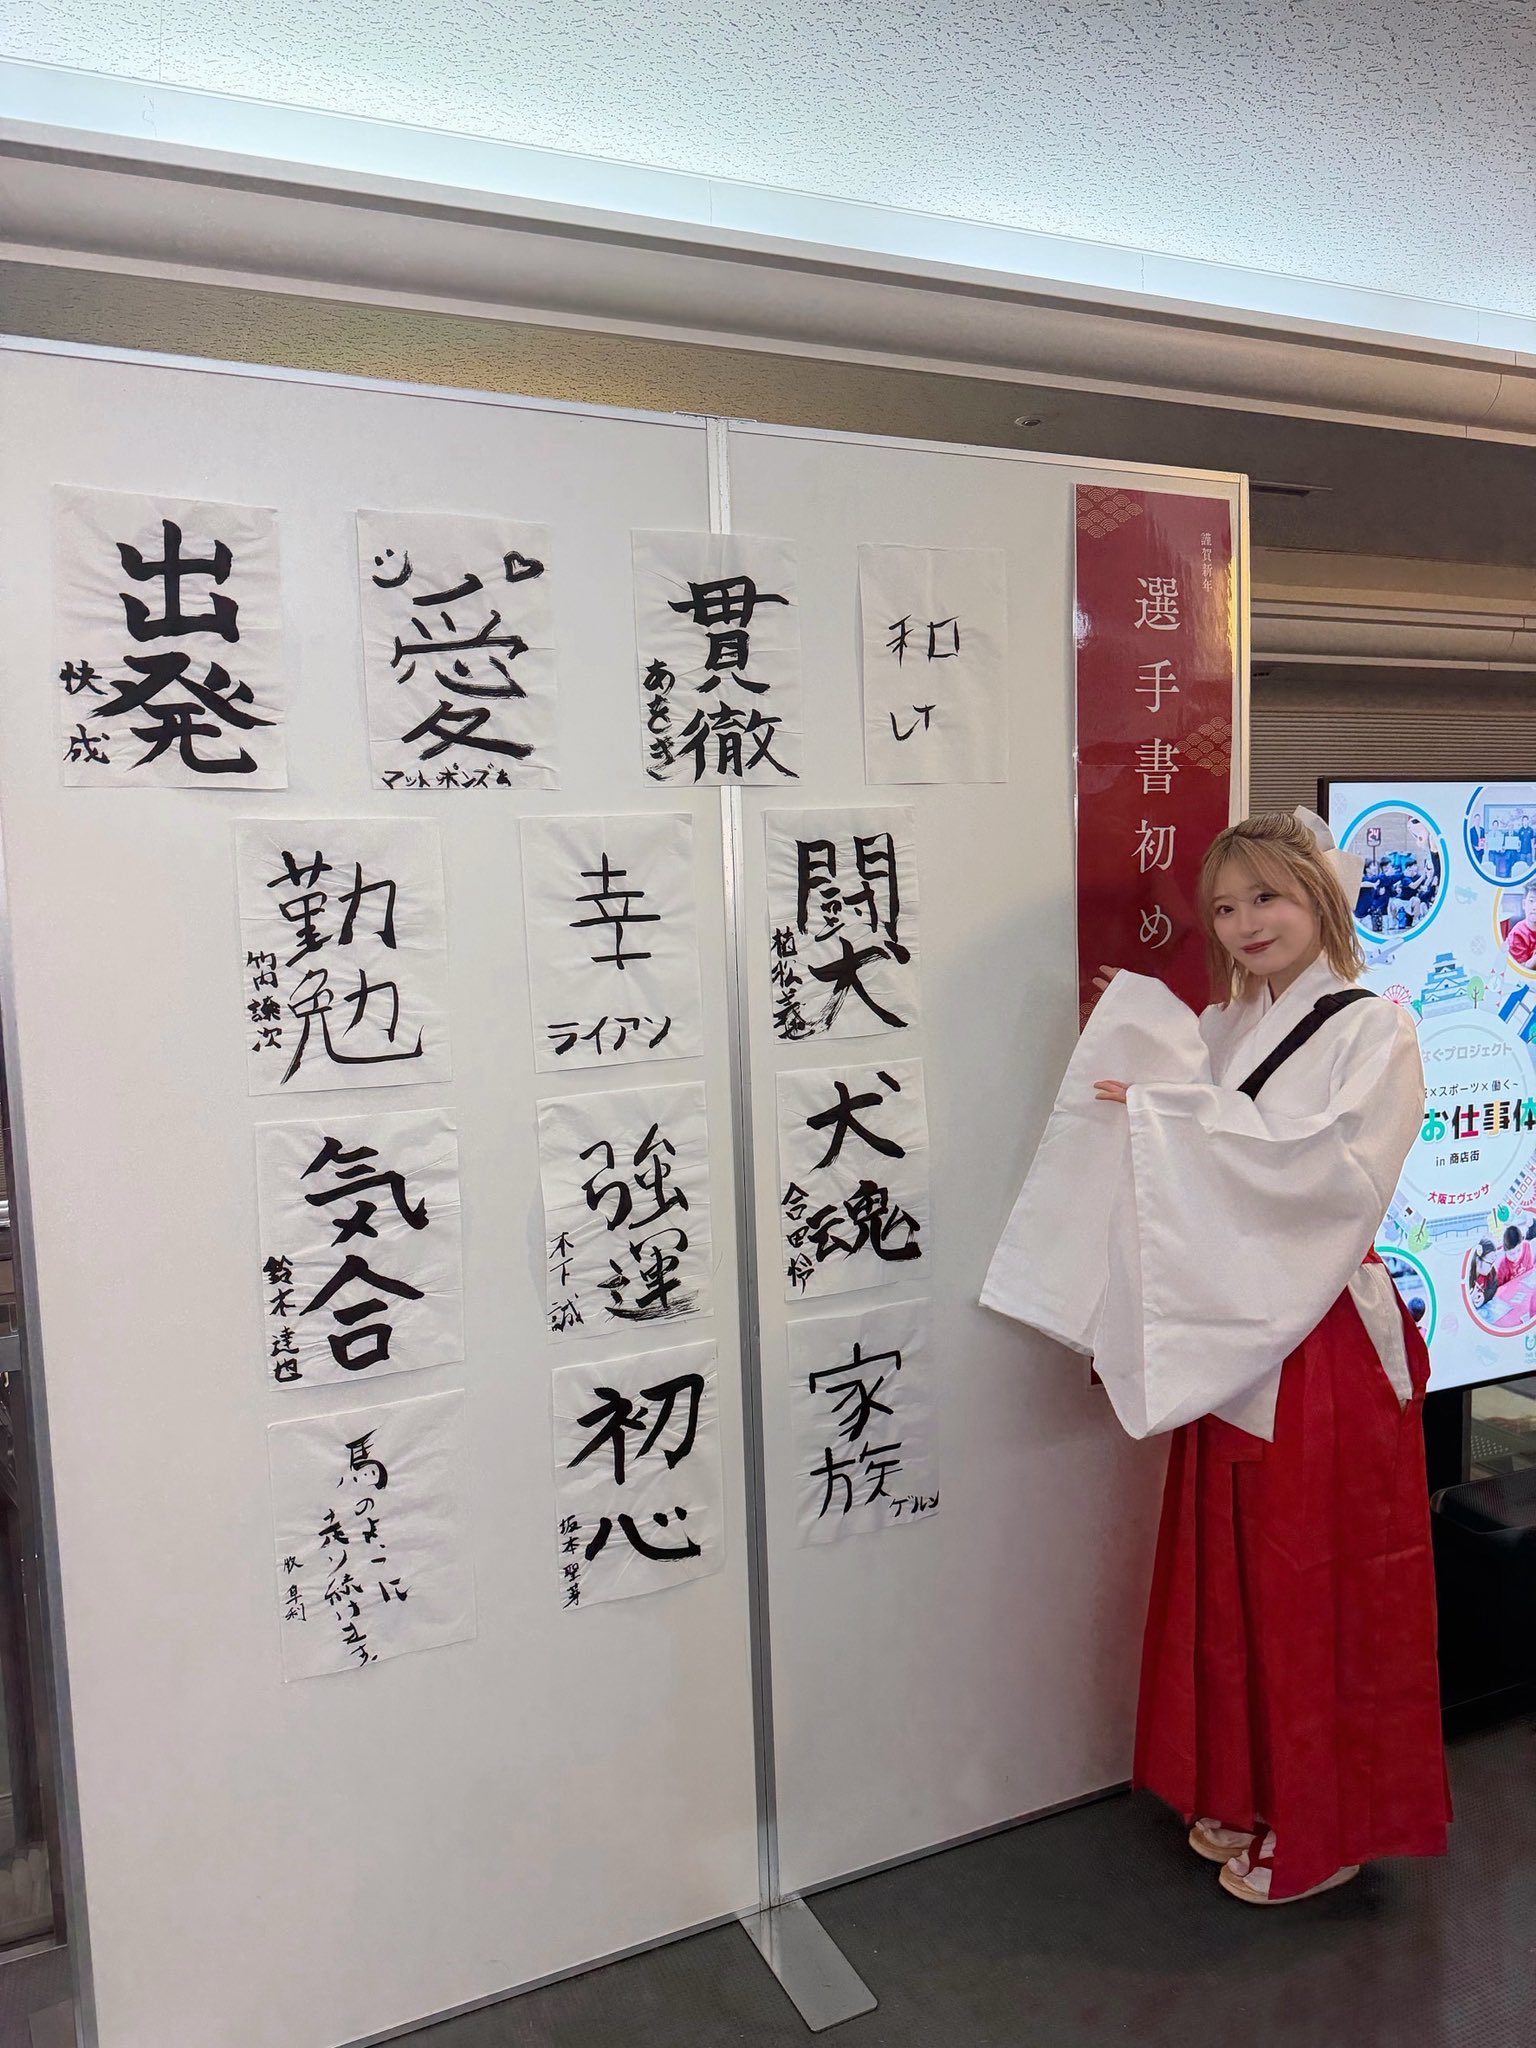 謹賀新年
選手書初め
和
LT
貫徹
あぐぎ
愛
マットポンズム
出発
快成
闘犬
植松義也
幸
ライアン
勤勉
竹内譲次
犬魂
合田怜
強運
木下誠
気合
鈴木達也
家族
ゲルン
初心
坂本聖芽
馬のように
走り続けます。
牧隼利
なぐプロジェクト
×スポーツ×働く~
お仕事体
in 商店街
大阪エヴェッサ